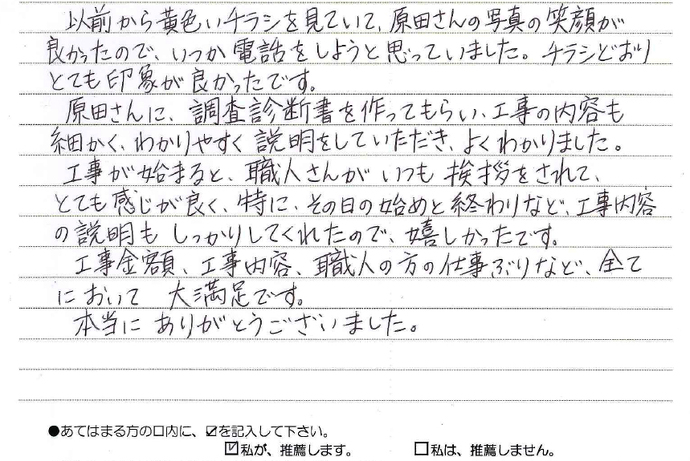 以前から黄色いチラシを見ていて、原田さんの写真の笑顔が
良かったので、いつか電話をしようと思っていました。チラシどおり
とても印象が良かったです。
原田さんに、調査診断書を作ってもらい、工事の内容も
細かく、わかりやすく説明をしていただき、よくわかりました。
工事が始まると、職人さんがいつも挨拶をされて、
とても感じが良く、特に、その日の始めと終わりなど、工事内容
の説明もしっかりしてくれたので、嬉しかったです。
工事金額、工事内容、職人の方の仕事ぶりなど、全て
において 大満足です。
本当にありがとうございました。
●あてはまる方の口内に、☑を記入して下さい。
☑私が、推薦します。 □私は、推薦しません。